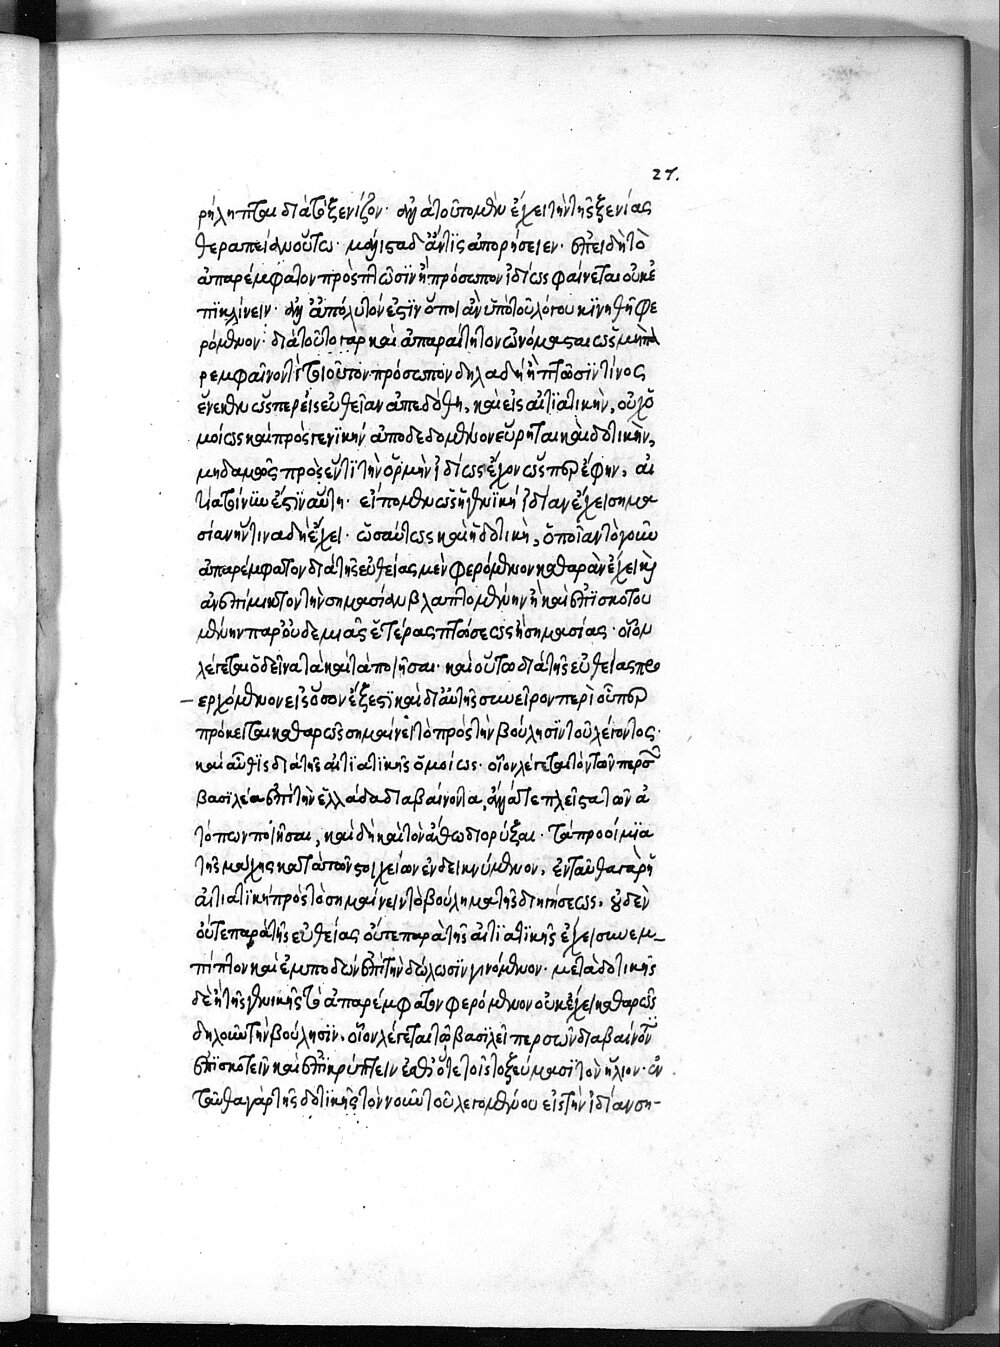 27.
ρήληπται διὰ τὸ ξενίζον· ἀλλὰ τοῦτο μὲν ἔχει τὴν τῆς ξενίας
θεραπείαν οὕτω· μάλιστα δ' ἄν τις ἀπορήσειεν· ἐπειδὴ τὸ
ἀπαρέμφατον πρὸς πτῶσιν ἢ πρόσωπον ἰδίως φαίνεται οὐκ ἐ
πικλίνειν· ἀλλ' ἀπόλυτόν ἐστιν ὅποι ἂν ὑπὸ τοῦ λόγου κινηθῆ φε
ρόμενον· διὰ τοῦτο γὰρ καὶ ἀπαραίτητον ὠνόμασται ὡς μὴ πα
ρεμφαῖνον τὶ τὸ ποιοῦν πρόσωπον δηλαδὴ ἢ πτῶσιν τίνος
ἕνεκεν ὥσπερ εἰς εὐθεῖαν ἀπεδόθη, καὶ εἰς αἰτιατικὴν, οὐχ ὁ
μοίως καὶ πρὸς γενικὴν ἀποδεδομένον εὕρηται καὶ δοτικὴν,
μηδαμῶς πρὸς ἕν τι τὴν ὁρμὴν ἰδίως ἔχον ὥσπερ ἔφην, αἰ
τία τίνων ἐστιν αὕτη· εἴπομεν ὡς ἡ γενικὴ ἰδίαν ἔχει σημα
σίαν ἥντινα δὴ ἔχει· ὡσαύτως καὶ ἡ δοτικὴ, ὁποίαν τὸ γοῦν
ἀπαρέμφατον διὰ τῆς εὐθείας μὲν φερόμενον καθαρὰν ἔχει καὶ
ἀνεπίμικτον τὴν σημασίαν βλαπτομένην ἢ καὶ ἐπισκοτου
μένην παρ' οὐδεμιᾶς ἑτέρας πτώσεως ἢ σημασίας· οἷον
λέγεται ὁ δεῖνα τὰ καὶ τὰ ποιῆσαι· καὶ οὕτω διὰ τῆς εὐθείας προ
ερχόμενον εἰς ὅσον ἔξεστι καὶ δι' αὐτῆς συνεῖρον περὶ οὗπερ
πρόκειται καθαρῶς σημαίνει τὸ πρὸς τὴν βούλησιν τοῦ λέγοντος·
καὶ αὖθις διὰ τῆς αἰτιατικῆς ὁμοίως· οἷον λέγεται τὸν τῶν περσῶν
βασιλέα ἐπὶ τὴν ἑλλάδα διαβαίνοντα, ἀλλά τε πλεῖστα τῶν ἀ
τόπων ποιῆσαι, καὶ δὴ καὶ τὸν ἄθω διορύξαι· τὰ προοίμια
τῆς μάχης κατὰ τῶν στοιχείων ἐνδεικνύμενον· ἐνταῦθα γὰρ ἡ
αἰτιατικὴ πρὸς τὸ σημαίνειν τὸ βούλημα τῆς διηγήσεως, οὐδὲν
οὔτε παρὰ τῆς εὐθείας οὔτε παρὰ τῆς αἰτιατικῆς ἔχει συνεμ-
πίπτον καὶ ἐμποδὼν ἐπὶ τὴν δήλωσιν γινόμενον· μετὰ δοτικῆς
δὲ ἢ τῆς γενικῆς τὸ ἀπαρέμφατον φερόμενον οὐκ ἔχει καθαρῶς
δηλοῦν τὴν βούλησιν· οἷον λέγεται τῷ βασιλεῖ περσῶν διαβαίνοντι
ἐπισκοτεῖν καὶ ἐπικρύπτειν ἔσθ' ὅτε τοῖς τοξεύμασι τὸν ἥλιον· ἐν
ταῦθα γὰρ τῆς δοτικῆς τὸν νοῦν τοῦ λεγομένου εἰς τὴν ἰδίαν ση-